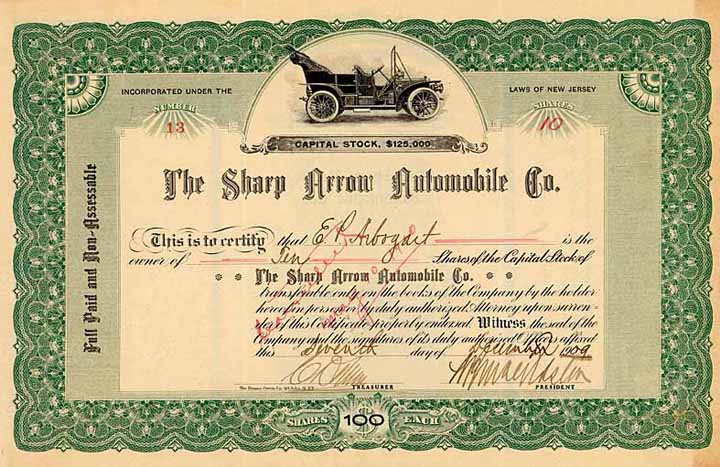 INCORPORATED UNDER THE LAWS OF NEW JERSEY
NUMBER
13
SHARES
10
CAPITAL STOCK, $125,000.
The Sharp Arrow Automobile Co.
Full Paid and Non-Assessable
This is to certify that E. P. Arbogast is the
owner of Ten Shares of the Capital Stock of
The Sharp Arrow Automobile Co.
transferable only on the books of the Company by the holder
hereof in person or by duly authorized Attorney upon surren-
der of this Certificate properly endorsed. Witness the seal of the
Company and the signatures of its duly authorized Officers affixed
this Seventh day of December 1909
TREASURER
PRESIDENT
SHARES 100 EACH